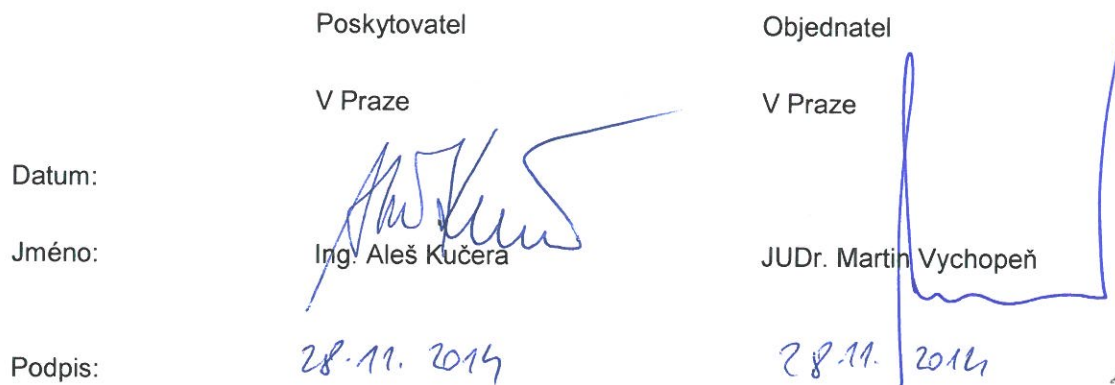 Poskytovatel Objednatel
V Praze V Praze
Datum:
Jméno: Ing. Aleš Kučera JUDr. Martin Vychopeň
Podpis: 28.11. 2014 28.11. 2014